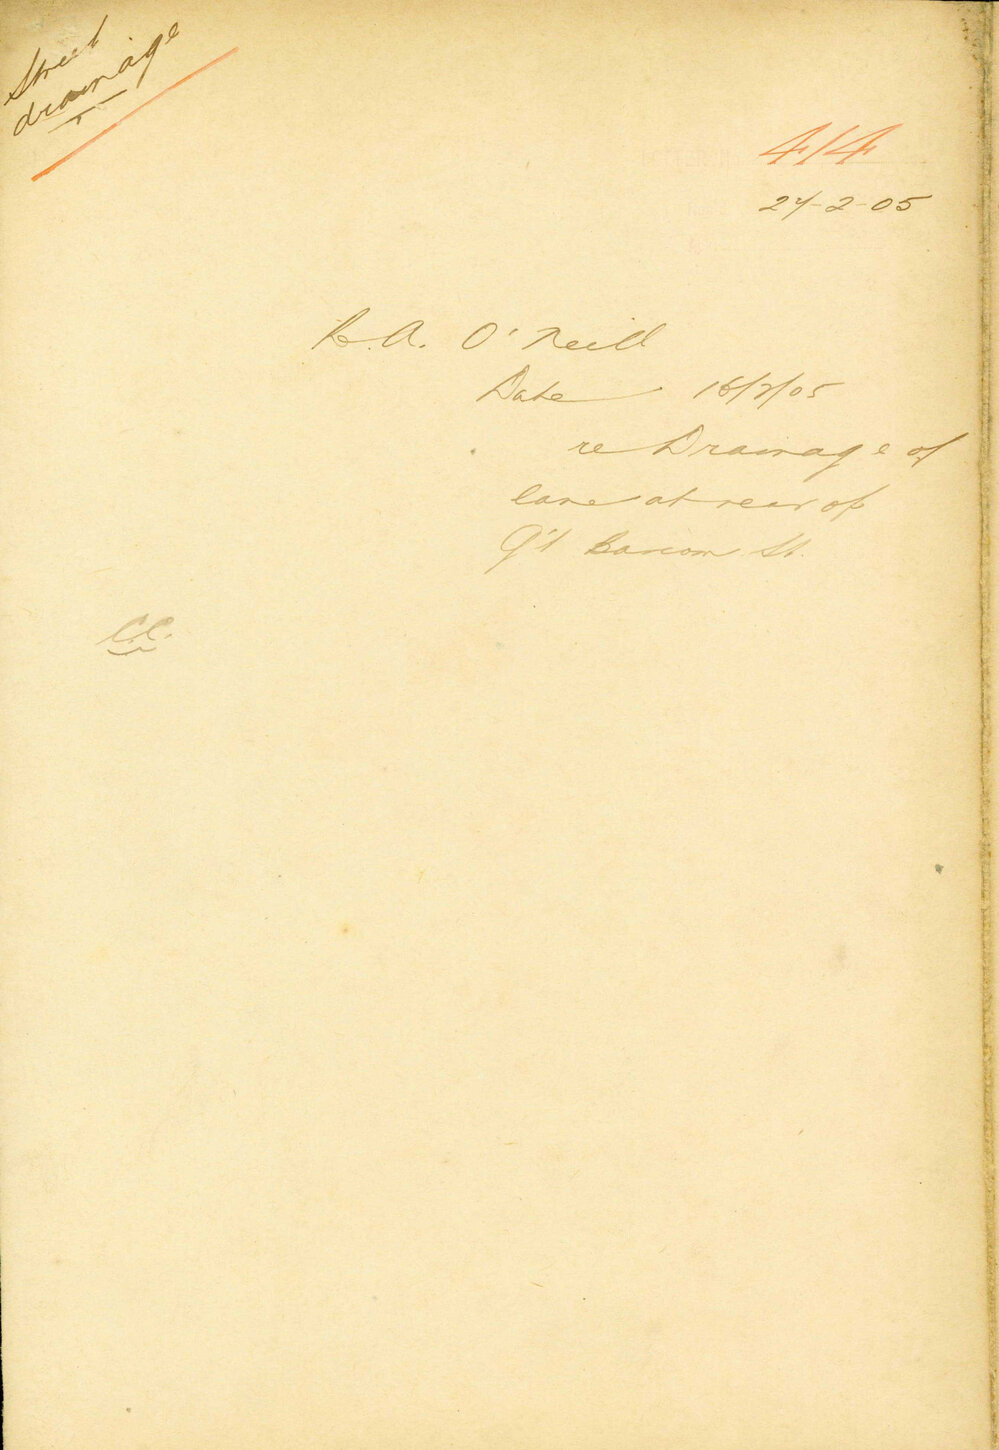 Street
drainage
414
27-2-05
A. O'Neill
Date 16/2/05
re Drainage of
lane at rear of
Gt Barcom St.
C.C.